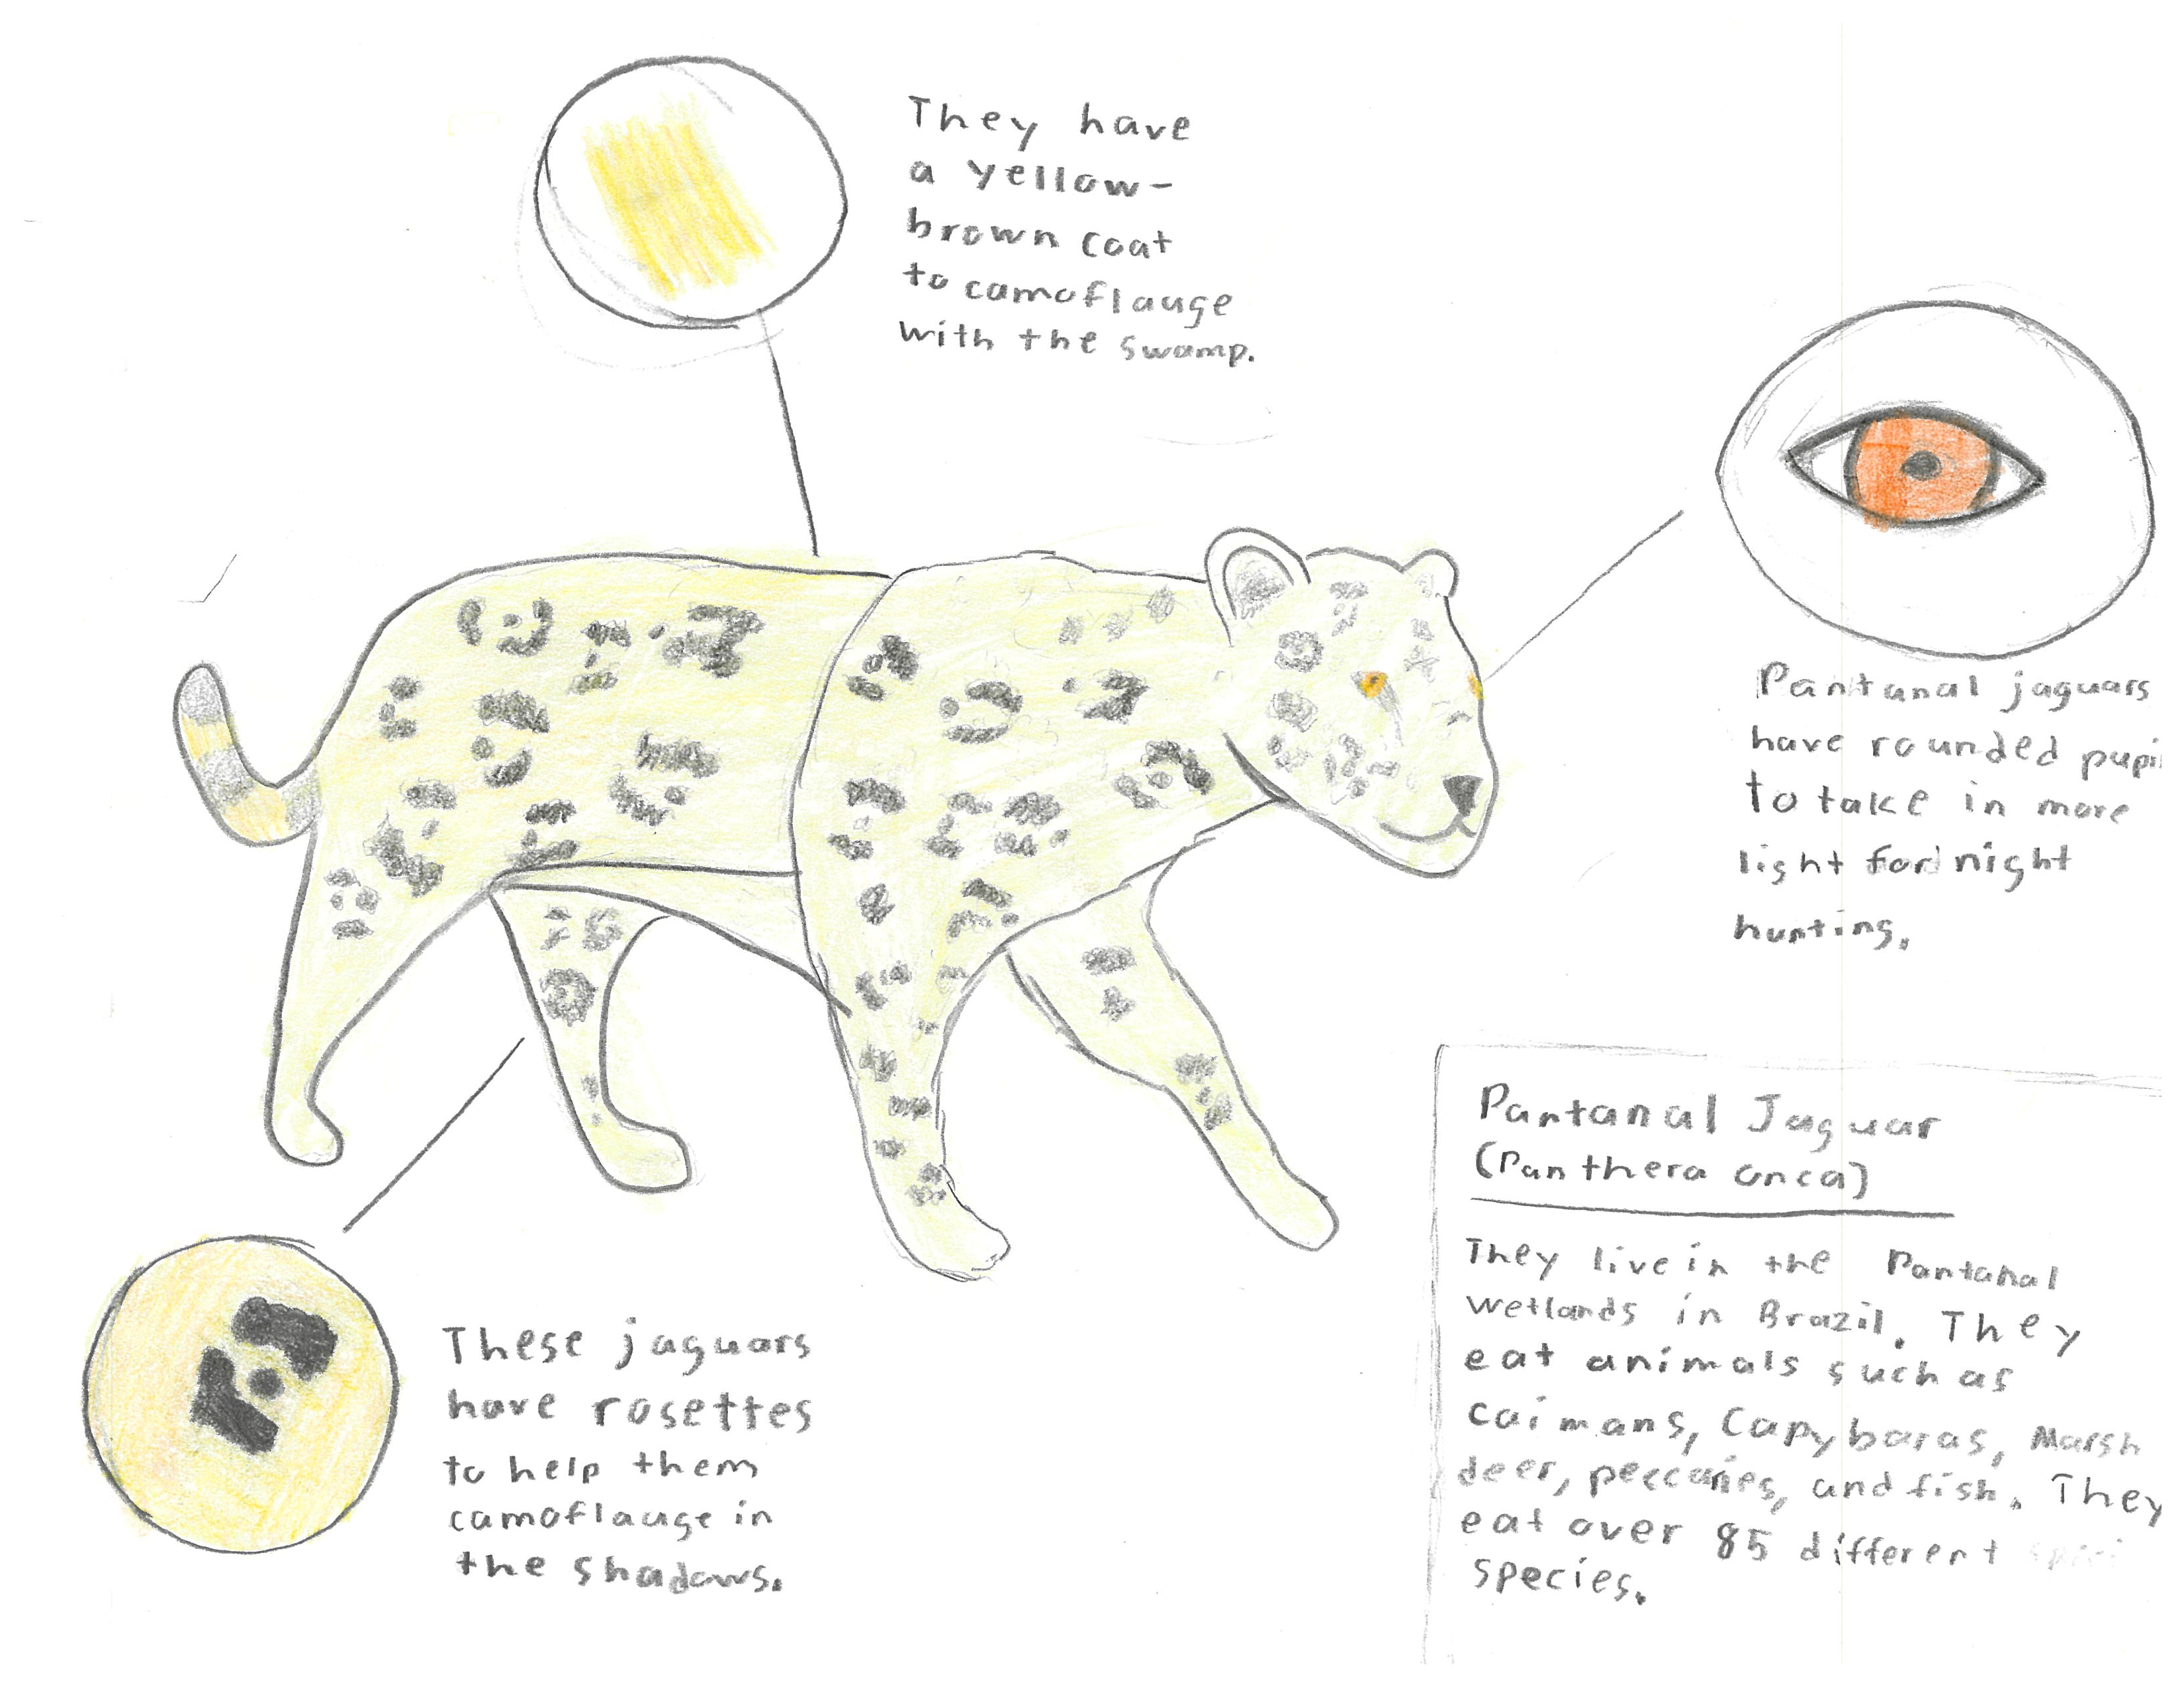 They have
a yellow-
brown coat
to camoflauge
with the swamp.
Pantanal jaguars
have rounded
to take in more
light for night
hunting.
These jaguars
have rosettes
to help them
camoflauge in
the shadows.
Pantanal Jaguar
(Panthera onca)
They live in the Pantanal
wetlands in Brazil. They
eat animals such as
caimans, Capybaras, Marsh
deer, peccaries, and fish. They
eat over 85 different
species.